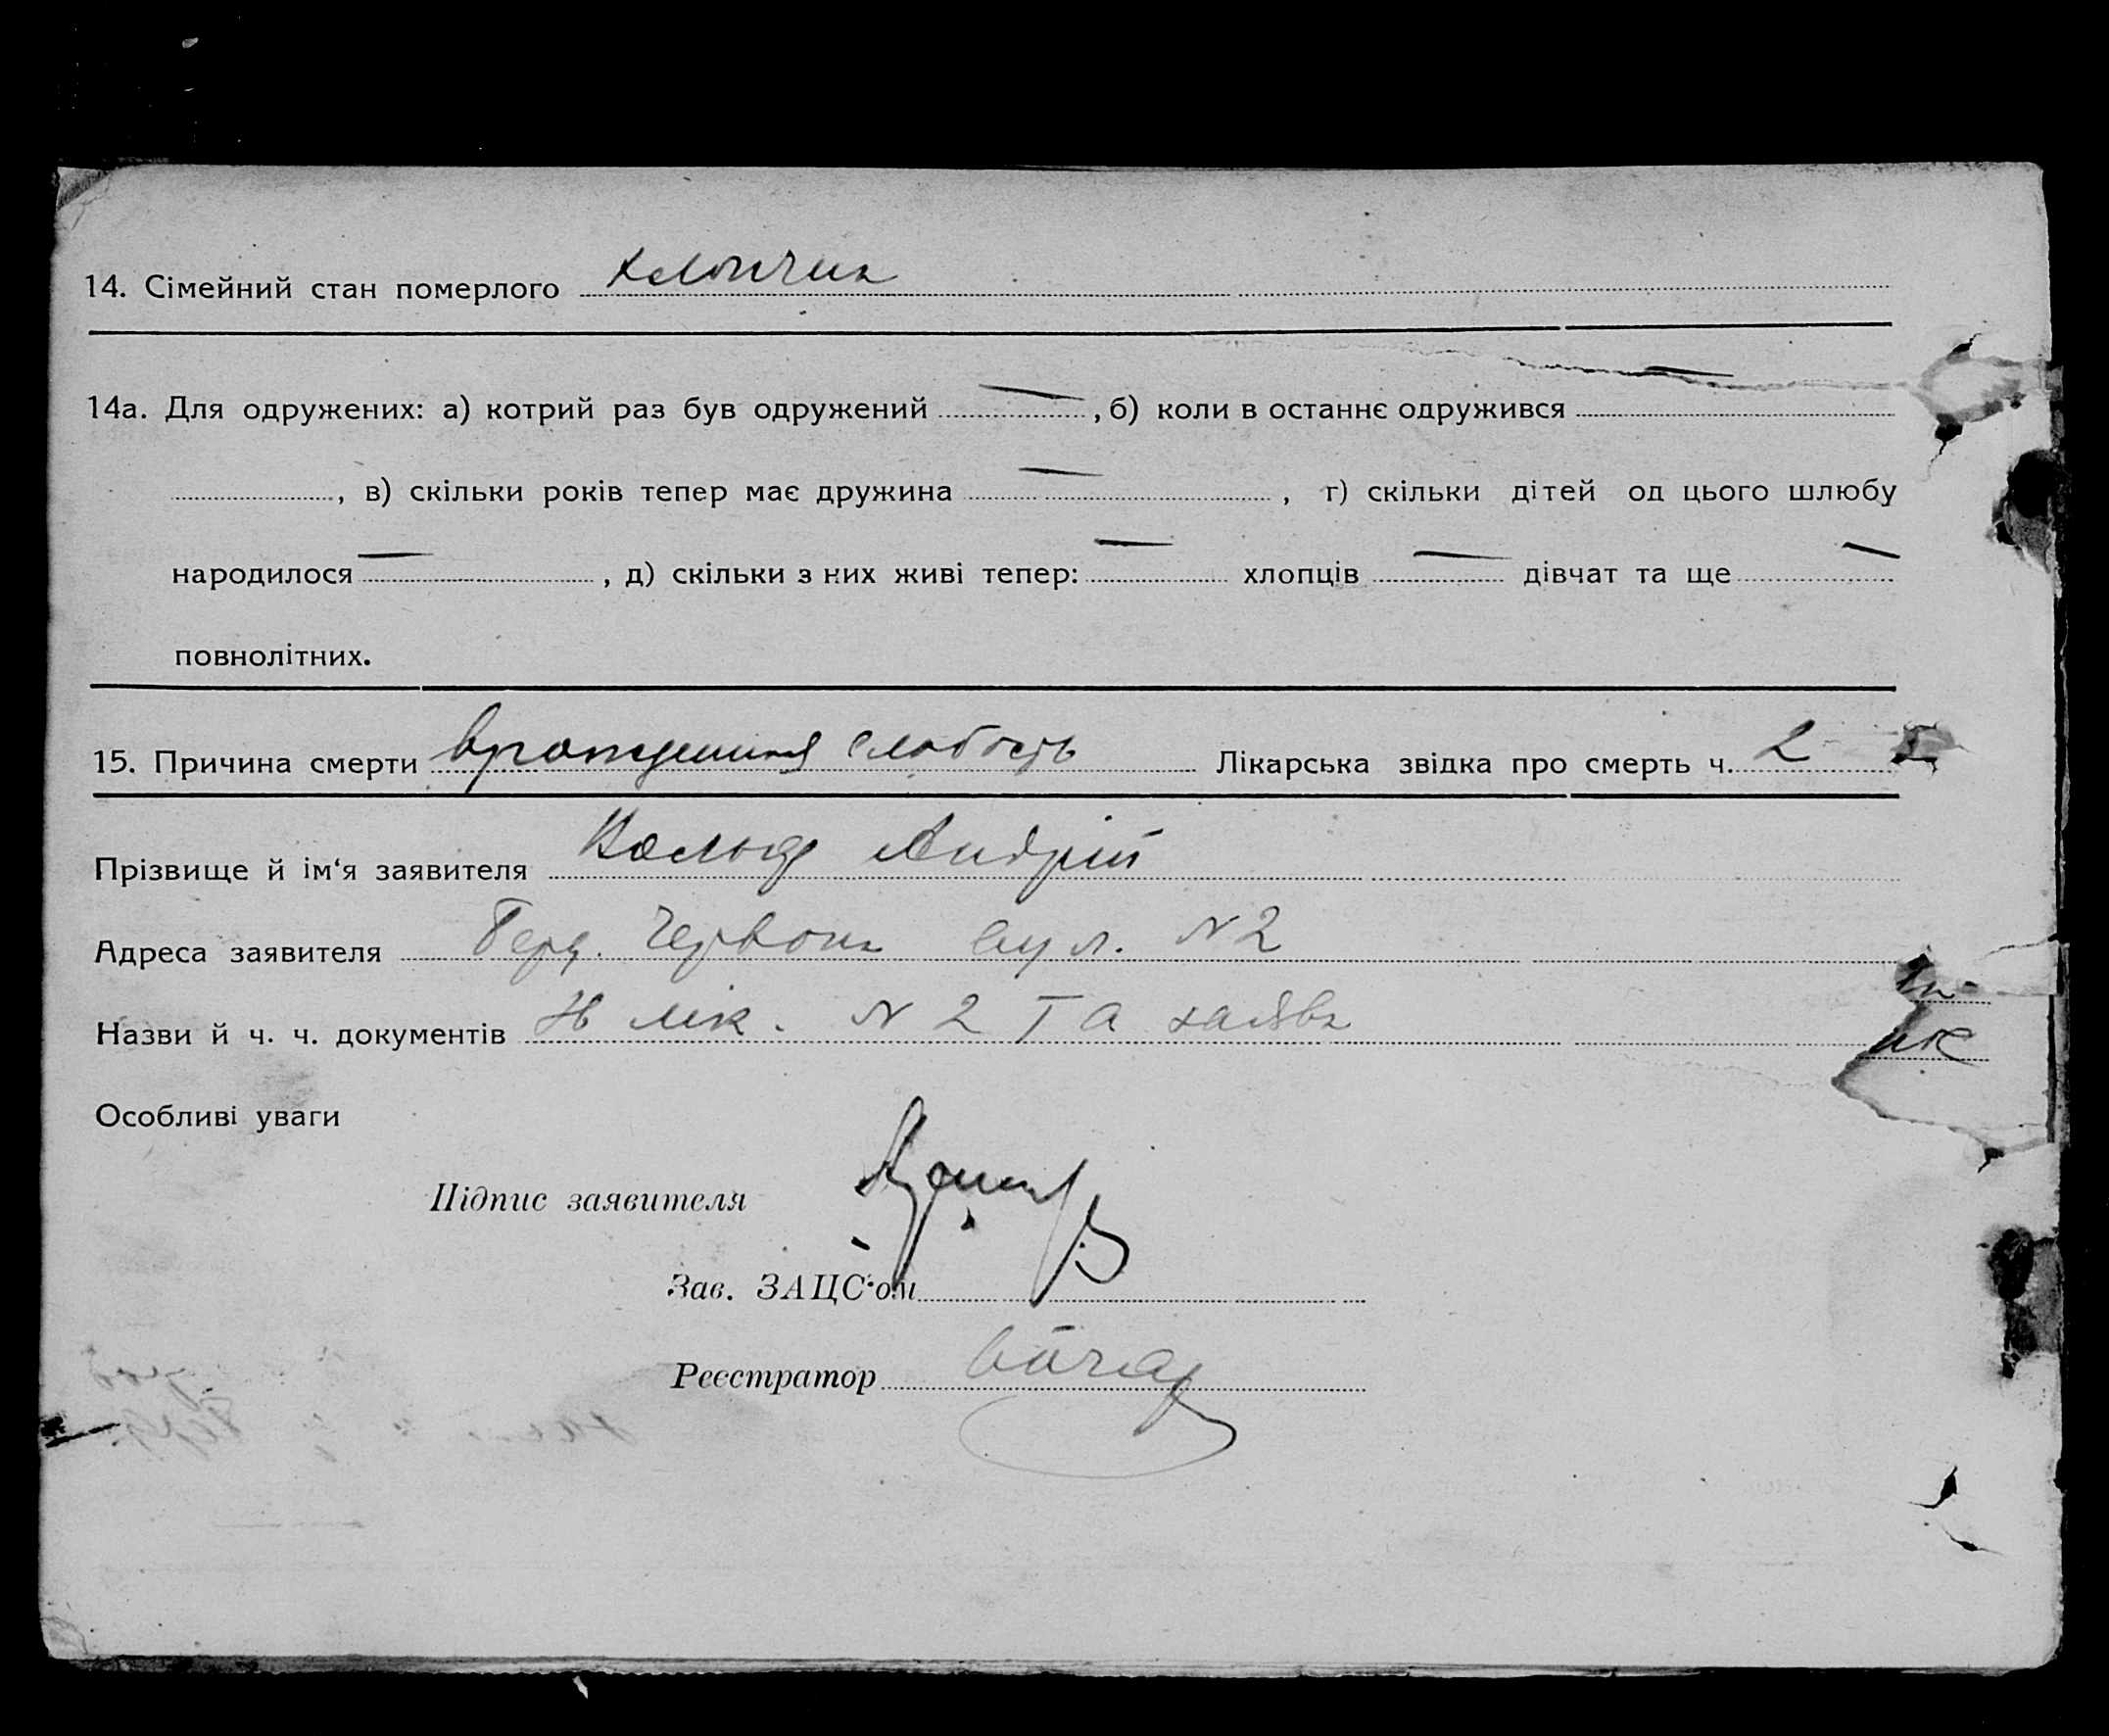 14. Сімейний стан померлого хлопчик
14а. Для одружених: а) котрий раз був одружений — , б) коли в останнє одружився —
, в) скільки років тепер має дружина — , г) скільки дітей од цього шлюбу
народилося — , д) скільки з них живі тепер: — хлопців — дівчат та ще —
повнолітних.
15. Причина смерти врожденная слабость Лікарська звідка про смерть ч. 2
Прізвище й ім‘я заявителя Андрій
Адреса заявителя Берд. Червон вул. N2
Назви й ч. ч. документів лік. N 2 та заява
Особливі уваги
Підпис заявителя
Зав. ЗАЦС‘ом
Реєстратор